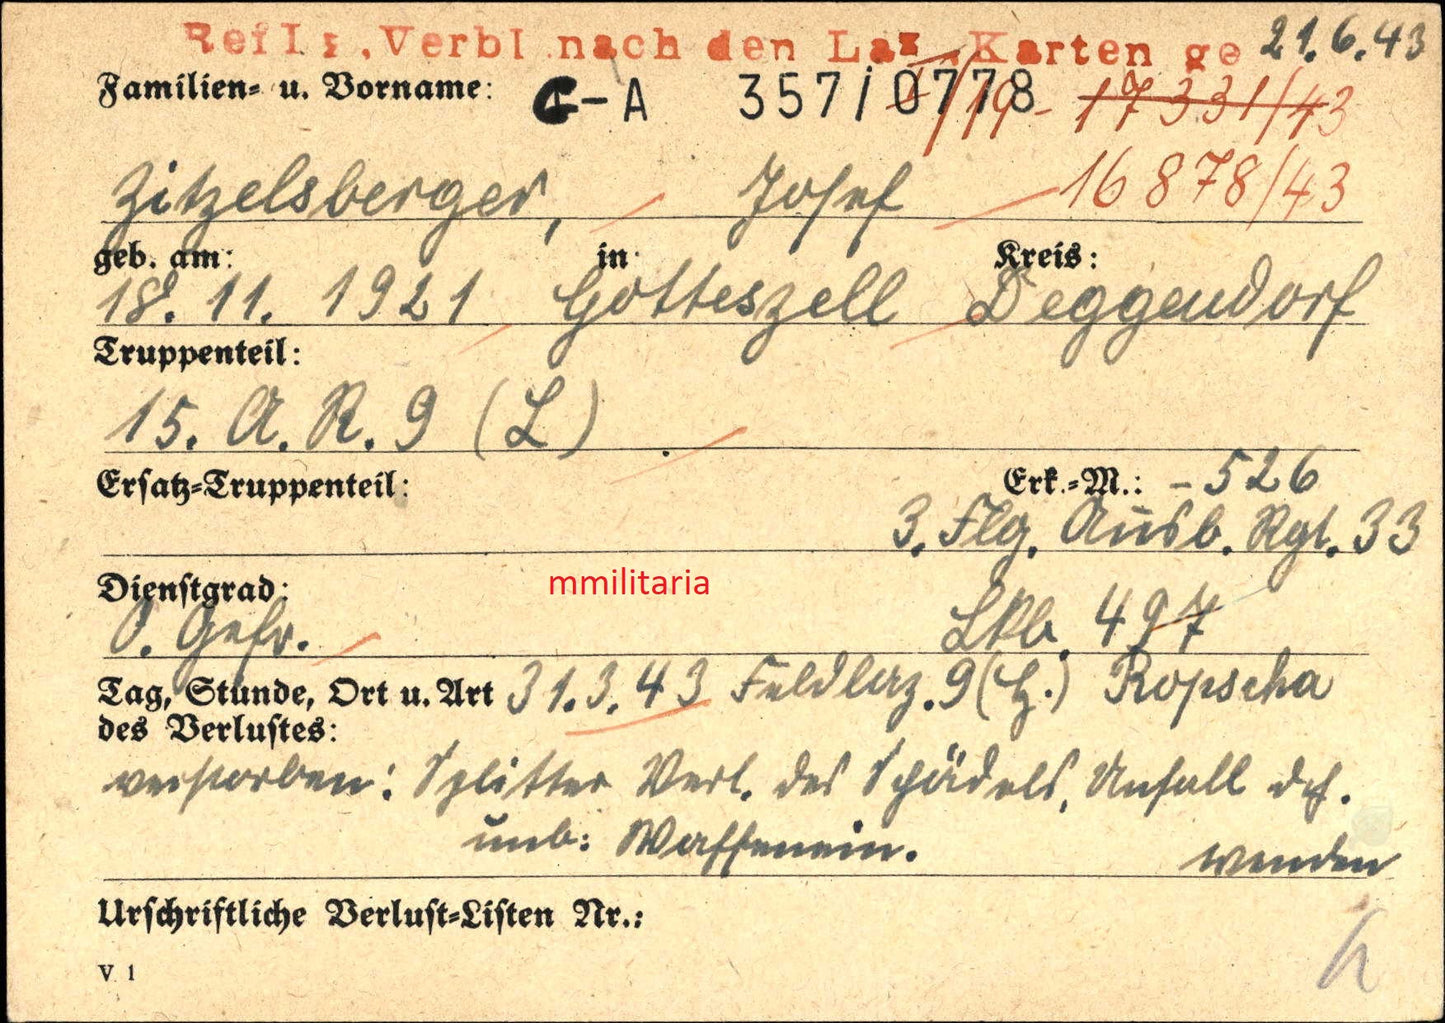 Verbl. nach den Laz. Karten ge 21.6.43
Familien- u. Vorname: G-A 357/0778 17331/43
16878/43
Zitzelsberger, Josef
geb. am: in Kreis:
18. 11. 1921 Gotteszell Deggendorf
Truppenteil:
15. A. R. 9 (L)
Ersatz-Truppenteil: Erk.-M.: -526
3. Flg. Ausb. Rgt. 33
Dienstgrad: 
O. Gefr. Lkb. 497
Tag, Stunde, Ort u. Art 31.3.43 Feldlaz. 9 (L.) Ropscha
des Verlustes:
verstorben: Splitter Verl. des Schädels, Unfall dch.
unb: Waffenein.
wenden
Urschriftliche Verlust-Listen Nr.:
V. 1
mmilitaria